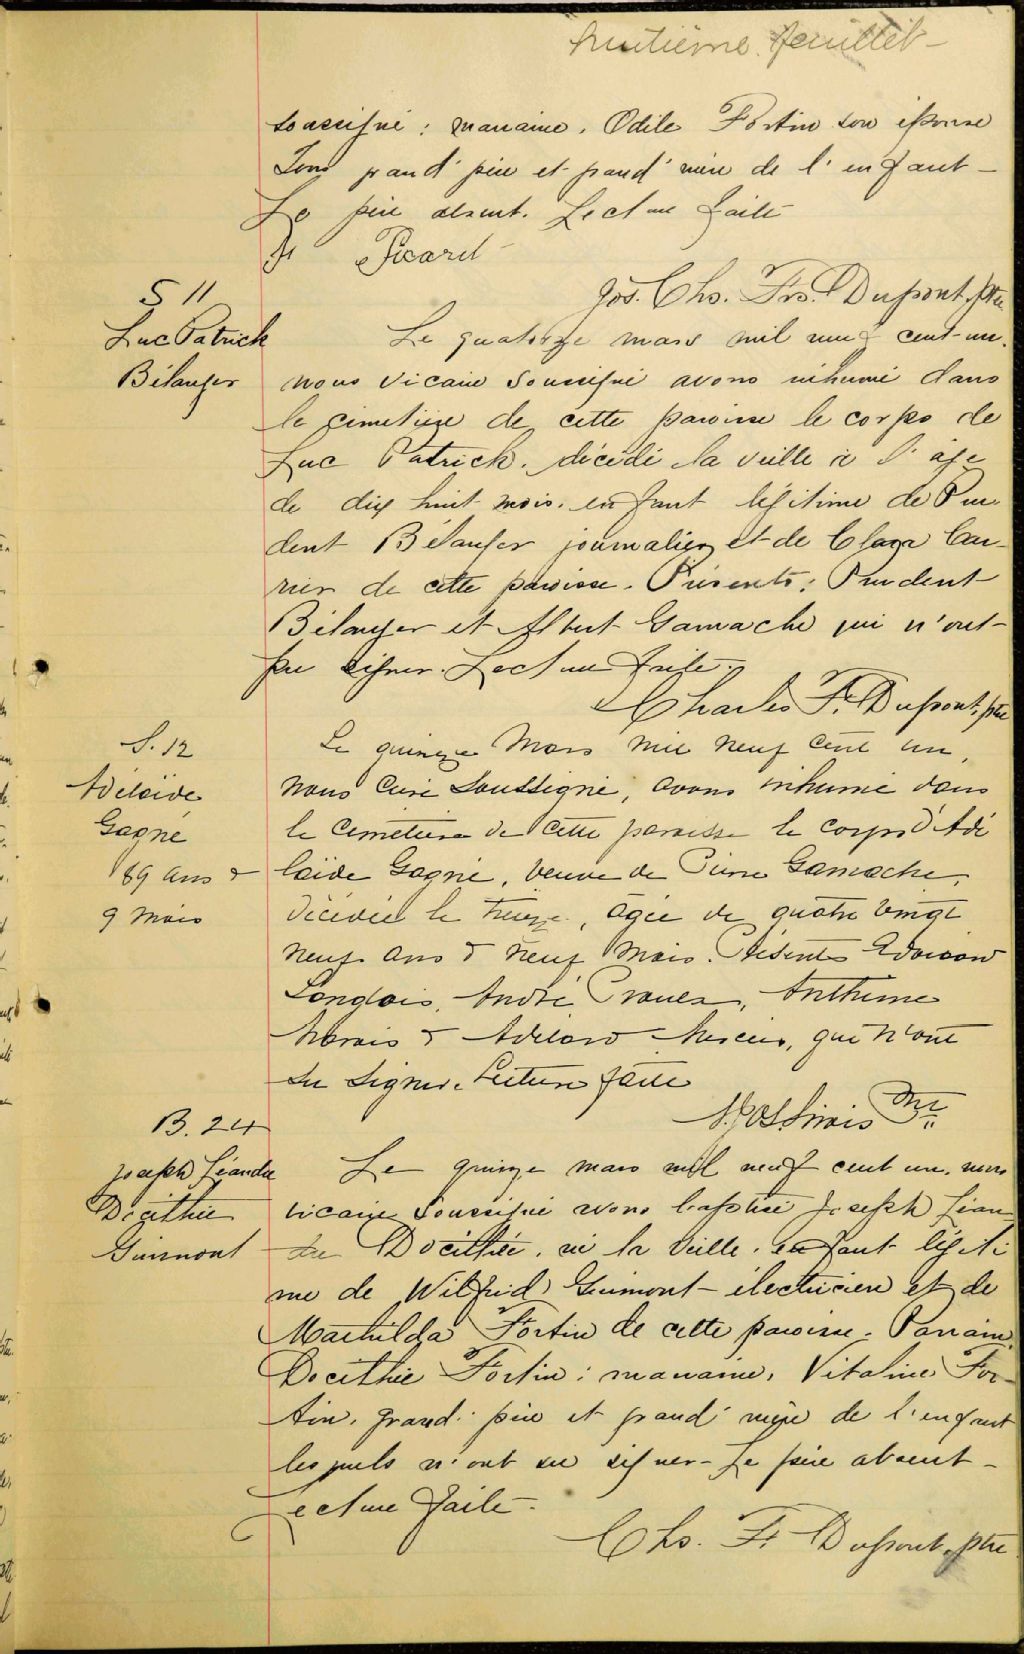 huitième feuillet
soussigné : marraine, Odile Fortin son épouse
Tous grand'père et grand'mère de l'enfant —
Le père absent. Lecture faite
Picard
Jos. Chs. Frs. Dupont, ptre
S 11
Luc Patrick
Bélanger
Le quatorze mars mil neuf cent-un.
nous vicaire soussigné avons inhumé dans
le cimetière de cette paroisse le corps de
Luc Patrick. décédé la veille à l'âge
de dix huit mois. enfant légitime de Pru
dent Bélanger journalier et de Clara Car-
rier de cette paroisse. Présents : Prudent
Bélanger et Albert Gamache qui n'ont
pu signer. Lecture faite.
Charles F. Dupont, ptre
S. 12
Adélaïde
Gagné
89 ans &
9 mois
Le quinze Mars mil neuf cent un,
nous Curé soussigné, avons inhumé dans
le cimetière de cette paroisse le corps d'Adé
laïde Gagné, veuve de Pierre Gamache,
décédée le treize, âgée de quatre vingt
neuf ans & neuf mois. Présents Edouard
Langlois, André Proulx, Anthime
Marois & Adélard Mercier, qui n'ont
su signer. Lecture faite
B. 24
Joseph Léandre
Docithée
Guimont
Le quinze mars mil neuf cent un. nous
vicaire soussigné avons baptisé Joseph Léan
dre Docithée. né la veille. enfant légiti
me de Wilfrid Guimont — électricien et de
Mathilda Fortin de cette paroisse. Parrain,
Docithée Fortin : marraine, Vitaline For-
tin. grand'père et grand'mère de l'enfant
lesquels n'ont su signer — Le père absent —
Lecture faite —
Chs. F. Dupont, ptre